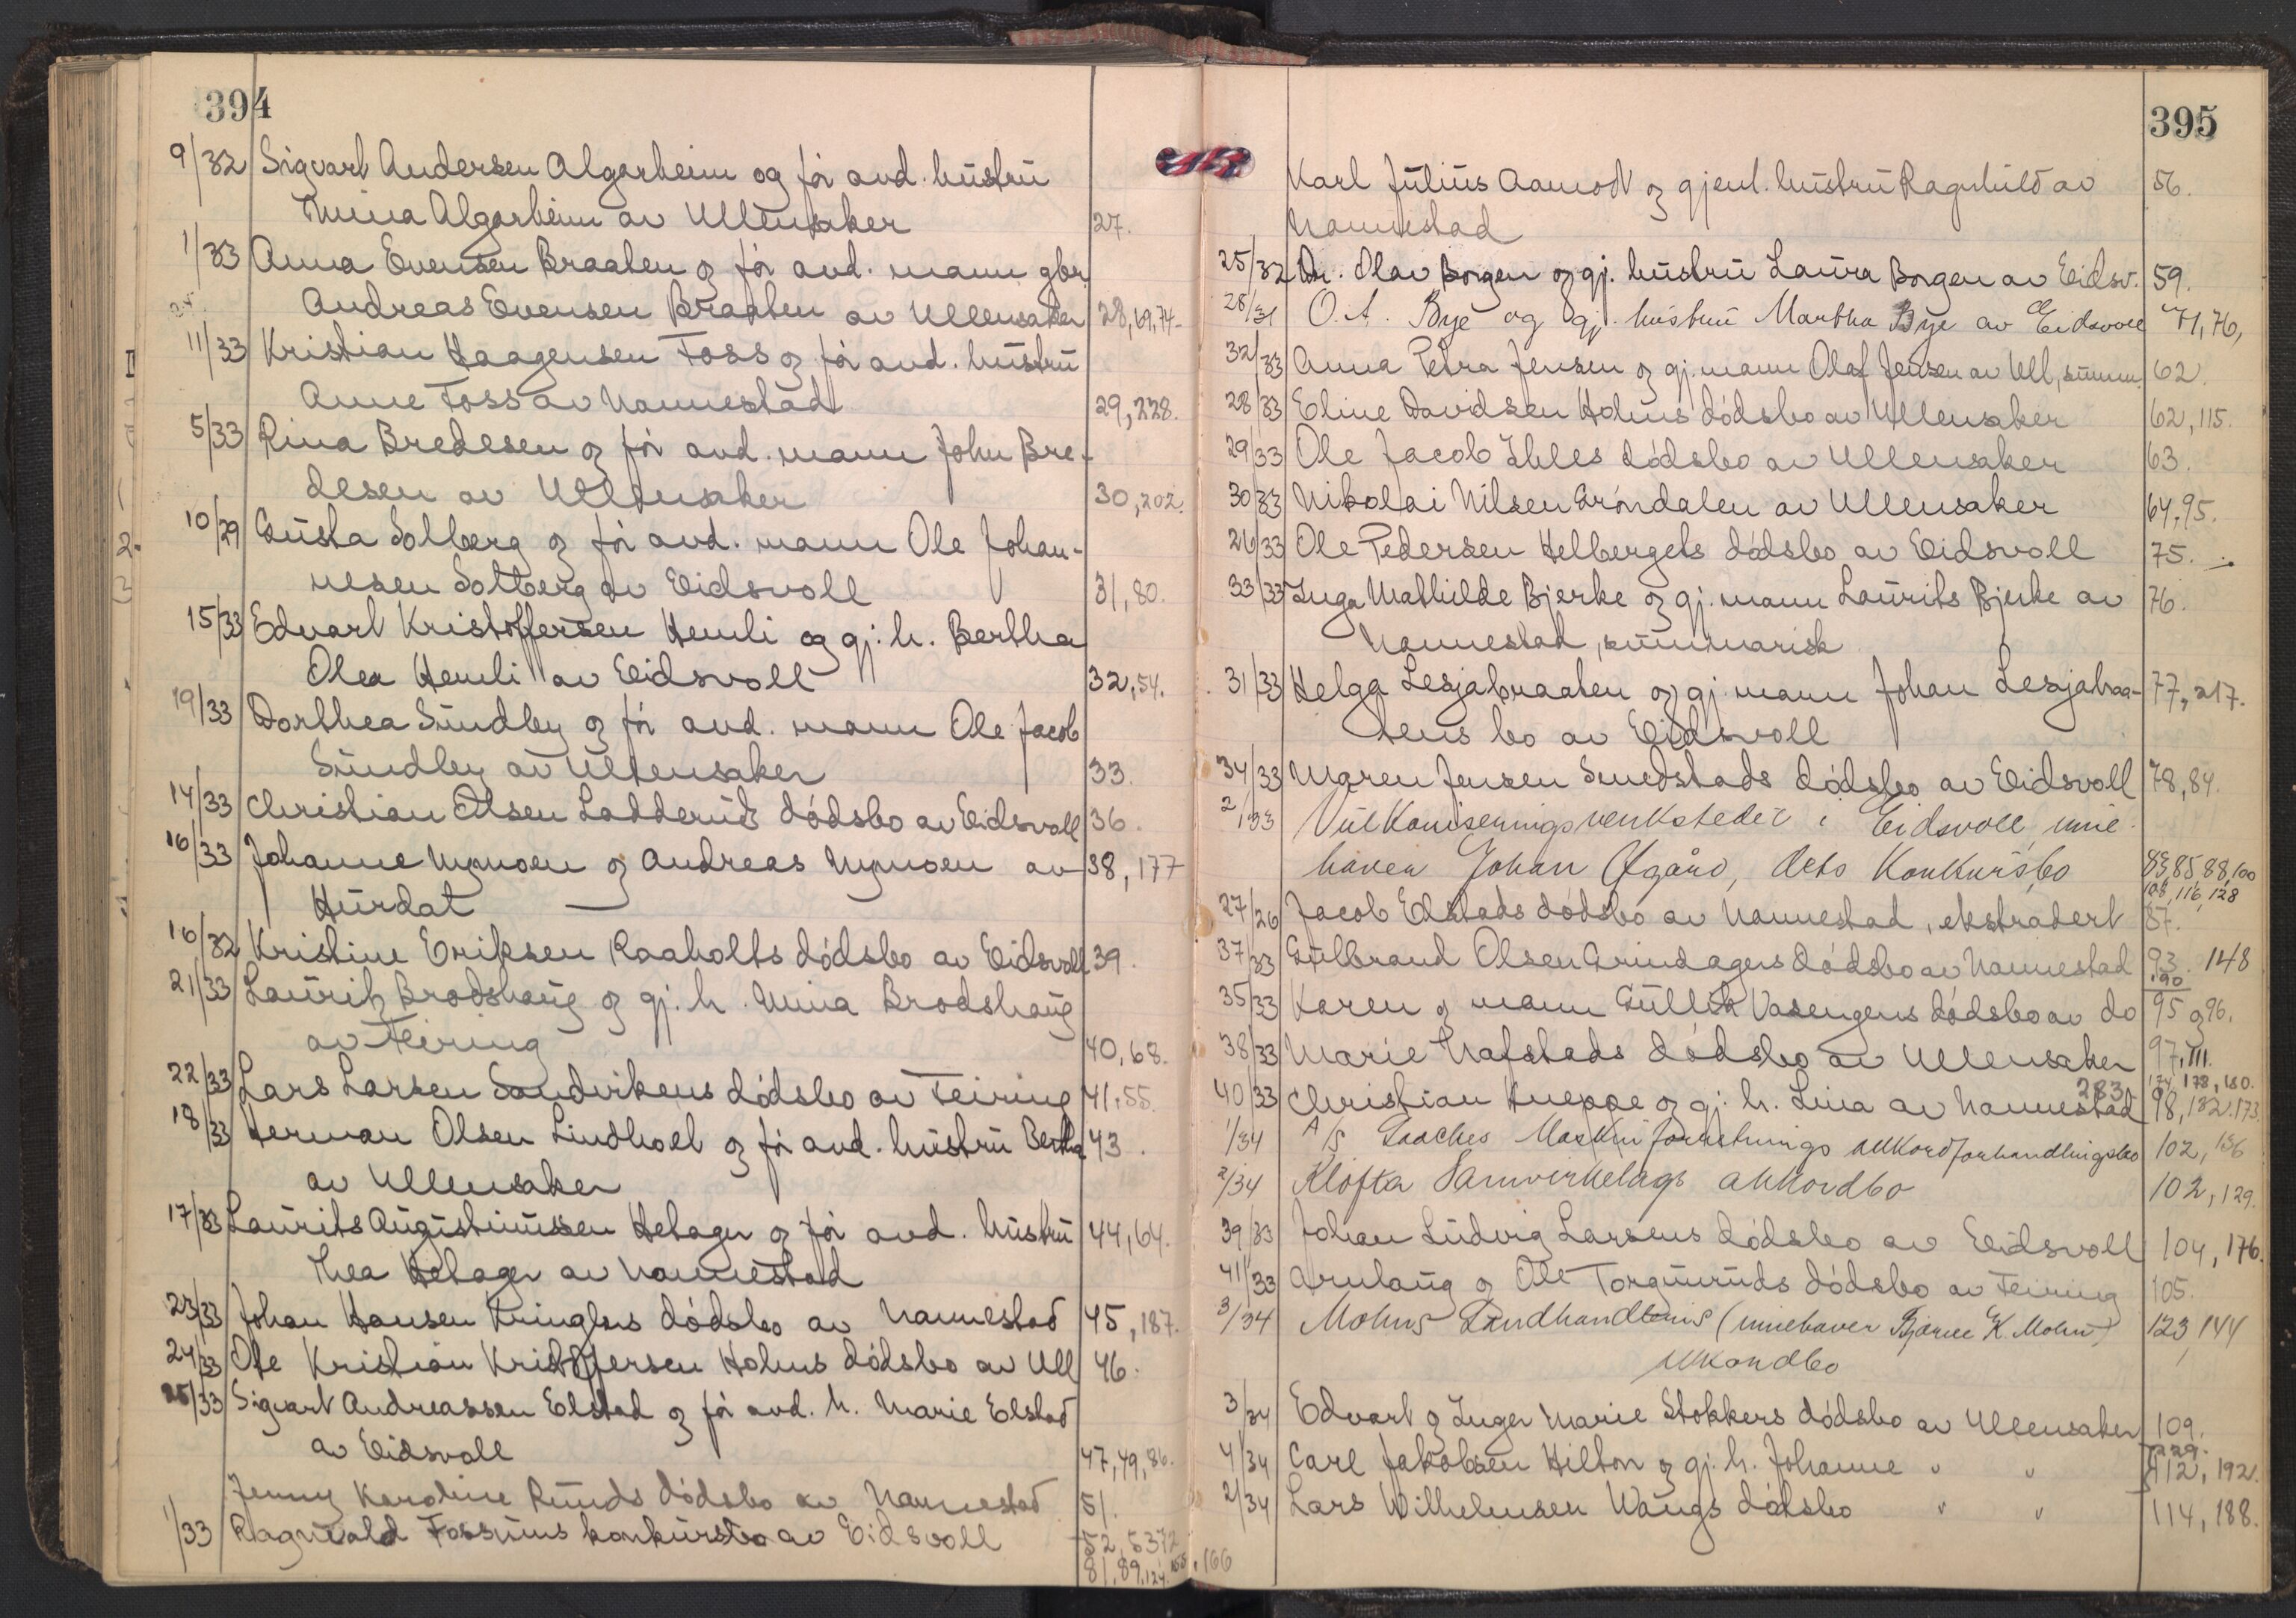 394
9/32 Sigvart Andersen Algarheim og før avd. hustru
Mina Algarheim av Ullensaker 27.
1/33 Anna Evensen Braaten og før avd. mann gbr.
Andreas Evensen Braaten av Ullensaker 28, 69, 74
11/33 Kristian Haagensen Foss og før avd. hustru
Anne Foss av Nannestad 29, 228.
5/33 Rina Bredesen og før avd. mann John Bre-
desen av Ullensaker 30, 202.
10/29 Gusta Solberg og før avd. mann Ole Johan-
nesen Solberg av Eidsvoll 31, 80.
15/33 Edvart Kristoffersen Hemli og gj. h. Bertha
Olea Hemli av Eidsvoll 32, 54.
19/33 Dorthea Sundby og før avd. mann Ole Jacob
Sundby av Ullensaker 33.
14/33 Christian Olsen Ladderud dødsbo av Eidsvoll 36.
16/33 Johanne Nymoen og Andreas Nymoen av 38, 177
Hurdal
16/32 Kristine Eriksen Raaholts dødsbo av Eidsvoll 39.
21/33 Lauritz Brodshaug og gj. h. Mina Brodshaug
av Feiring 40, 68.
22/33 Lars Larsen Sandvikens dødsbo av Feiring 41, 55.
18/33 Herman Olsen Lindhoel og før avd. hustru Bertha 43.
av Ullensaker
17/33 Laurits Augustinussen Hetager og før avd. hustru 44, 64.
Thea Hetager av Nannestad
23/33 Johan Hansen Kringlers dødsbo av Nannestad 45, 187.
24/33 Ole Kristian Kristoffersen Holms dødsbo av Ull 46.
25/33 Sigvart Andreassen Elstad og før avd. h. Marie Elstad
av Eidsvoll 47, 49, 86.
Jenny Karoline Runds dødsbo av Nannestad 51.
1/33 Ragnvald Fossums konkursbo av Eidsvoll 52, 53 72
81, 89, 124, 166
395
Karl Julius Aamodt og gjenl. hustru Ragnhild av 56.
Nannestad
25/32 Dr. Olav Borgen og gj. hustru Laura Borgen av Eidsv. 59.
28/31 O. A. Bye og gj. hustru Martha Bye av Eidsvoll 71, 76,
32/33 Anna Petra Jensen og gj. mann Olaf Jensen av Ull, summ. 62.
28/33 Eline Davidsen Holms dødsbo av Ullensaker 62, 115.
29/33 Ole Jacob Ihles dødsbo av Ullensaker 63.
30/33 Nikolai Nilsen Grøndalen av Ullensaker 64, 95.
26/33 Ole Pedersen Helbergets dødsbo av Eidsvoll 75.
33/33 Inga Mathilde Bjerke og gj. mann Laurits Bjerke av 76.
Nannestad, summarisk
31/33 Helga Lesjabraaten og gj. mann Johan Lesjabraa- 77, 217.
tens bo av Eidsvoll
34/33 Maren Jensen Smedstads dødsbo av Eidsvoll 78, 84.
2/33 Vulkaniseringsverkstedet i Eidsvoll, inne-
haver Johan Øgård, dets Konkursbo 83, 85 88, 100
108, 116, 128
27/26 Jacob Elstads dødsbo av Nannestad, ekstradert 87.
37/33 Gulbrand Olsen Grindagers dødsbo av Nannestad 93. 148
190
35/33 Karen og mann Gullik Vasengens dødsbo av do 95 og 96.
38/33 Marie Nafstads dødsbo av Ullensaker 97, 111.
174, 178, 180.
40/33 Christian Hueppe og gj. h. Lina av Nannestad 283 98, 132, 173
1/34 A/S Gaaches Maskinforretnings akkordforhandlingsbo 102, 136
2/34 Kløfta Samvirkelags akkordbo 102, 129.
39/33 Johan Ludvig Larsens dødsbo av Eidsvoll 104, 176.
41/33 Arnlaug og Ole Torgunruds dødsbo av Feiring 105.
3/34 Mohns Landhandleris (innehaver Bjarne K. Mohn) 123, 144
akkordbo
3/34 Edvart og Inger Marie Stokkers dødsbo av Ullensaker 109.
229.
4/34 Carl Jakobsen Hilton og gj. h. Johanne " " 112, 192.
2/34 Lars Wilhelmsen Waugs dødsbo " " 114, 188.